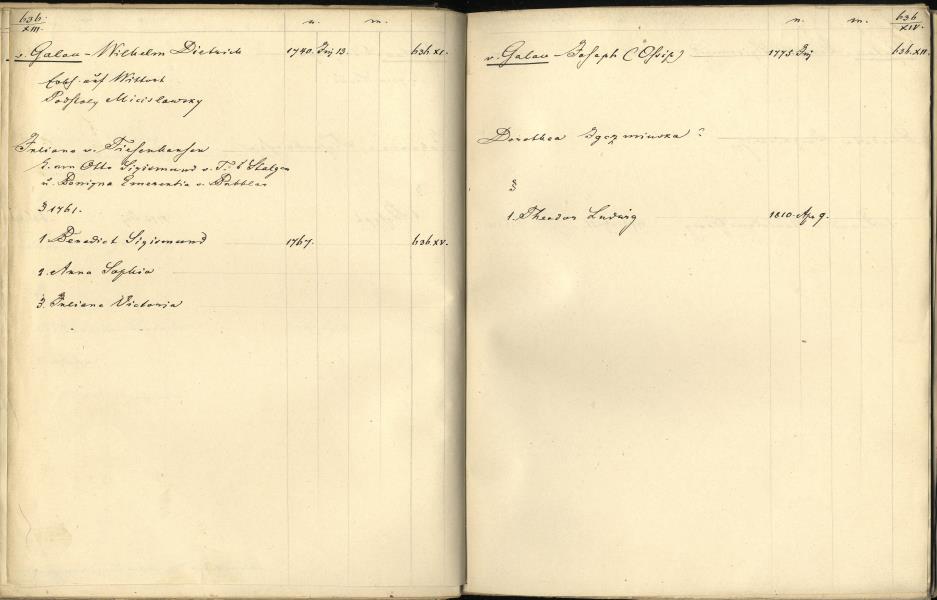 636. n. m.
XIII.
v. Galau - Wilhelm Dietrich 1740. Juj 13. 636 XI.
Erbh. auf Wittort
Podstoly Micislawsky
Juliana v. Tiesenhausen
T. v. Otto Sigismund v. T.
u. Benigna Emerentia v.
§ 1761.
1. Benedict Sigismund 1767. 636 XV.
2. Anna Sophia
3. Juliana Victoria
n. m. 636
XIV.
v. Galau - Joseph (Ossip) 1775. Juj 636. XII.
Dorothea ?
§
1. Theodor Ludwig 1810. Apr 9.